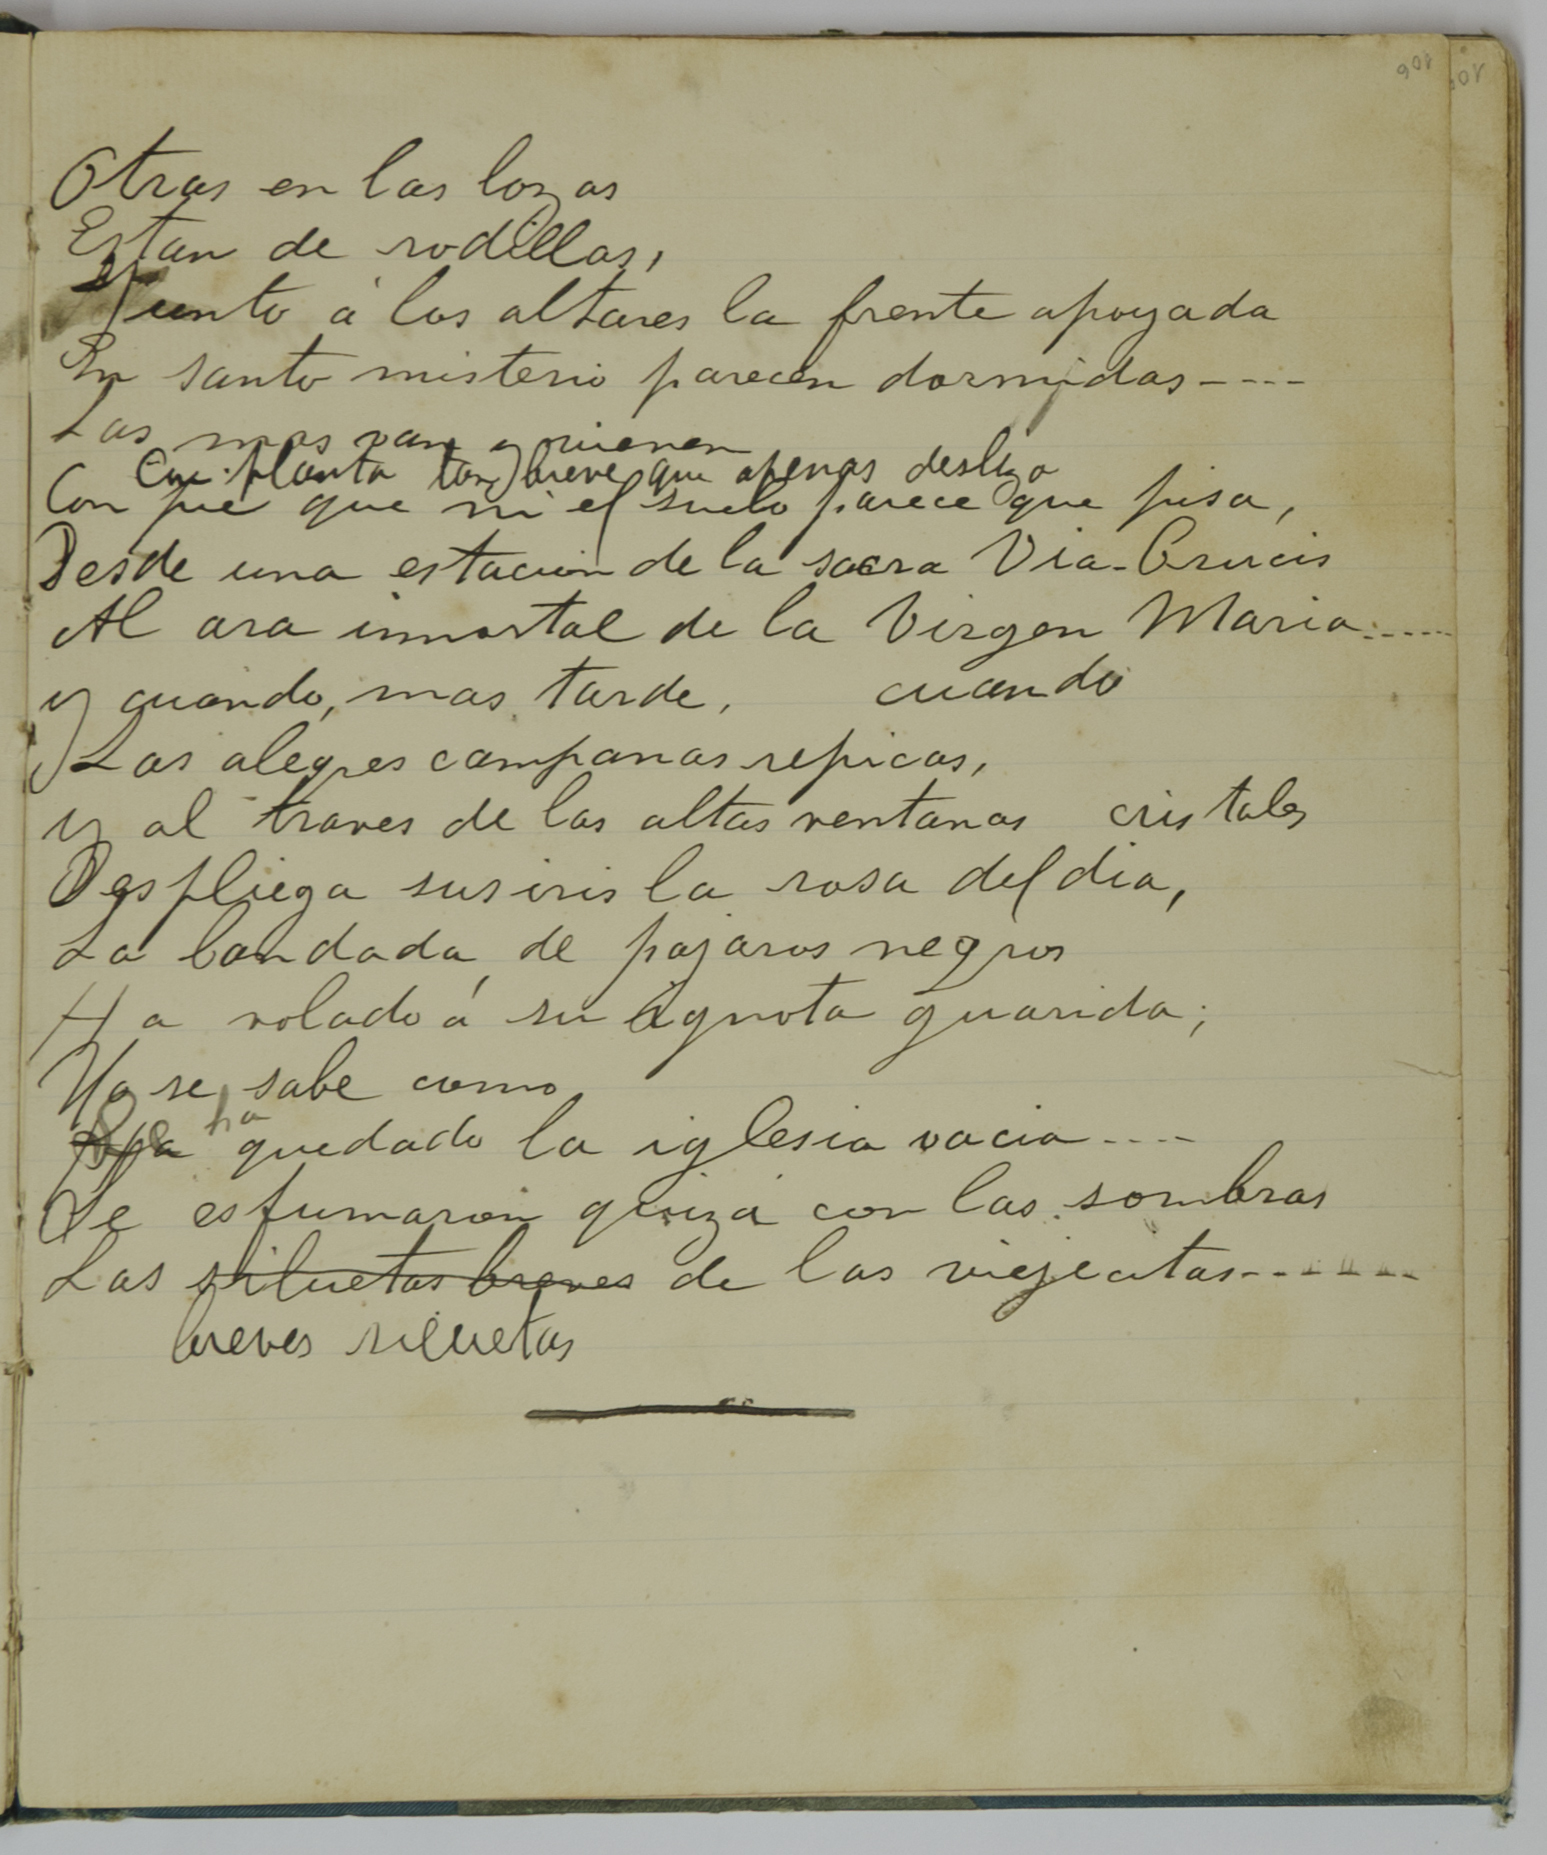 106
Otras en las lozas
Estan de rodillas,
Junto á los altares la frente apoyada
En santo misterio parecen dormidas----
Las mas van y vienen
Con planta tan breve que apenas desliza
Con pie que ni el suelo parece que pisa,
Desde una estacion de la sacra Via-Crucis
Al ara inmortal de la Virgen Maria.-----
y cuando, mas tarde, cuando
Las alegres campanas repicas,
y al traves de las altas ventanas cristales
Despliega sus iris la rosa del dia,
La bandada de pajaros negros
Ha volado á su ignota guarida;
No se sabe como
Se ha quedado la iglesia vacia----
Se esfumaron quizá con las sombras
Las siluetas breves de las viejecitas-------
breves siluetas